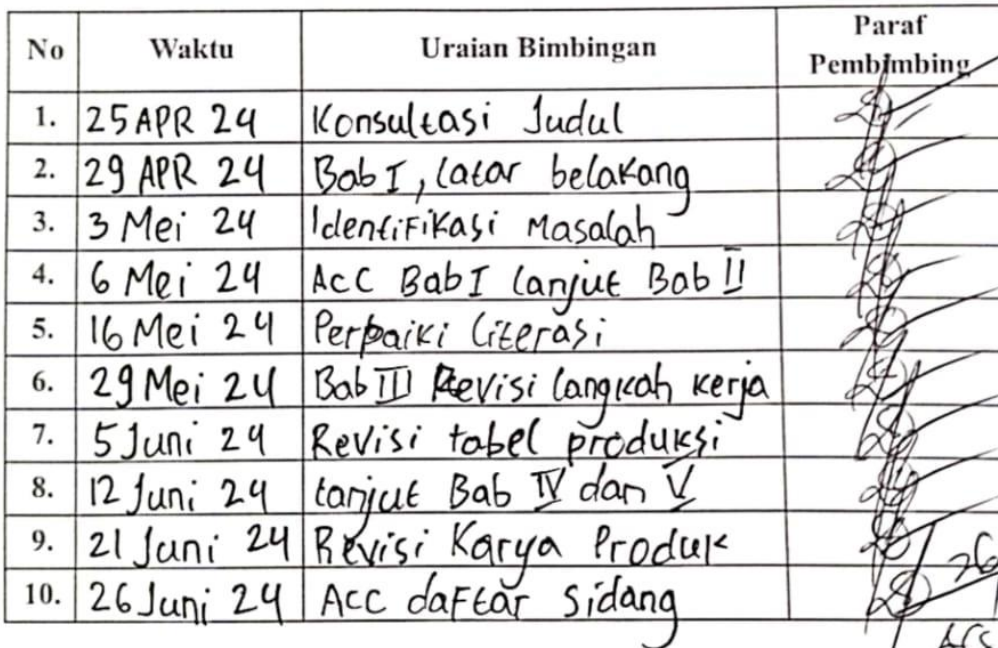 No Waktu Uraian Bimbingan Paraf Pembimbing
1. 25 APR 24 Konsultasi Judul
2. 29 APR 24 Bab I, latar belakang
3. 3 Mei 24 Identifikasi Masalah
4. 6 Mei 24 ACC Bab I lanjut Bab II
5. 16 Mei 24 Perbaiki literasi
6. 29 Mei 24 Bab III Revisi langkah kerja
7. 5 Juni 24 Revisi tabel produksi
8. 12 Juni 24 lanjut Bab IV dan V
9. 21 Juni 24 Revisi Karya Produk
10. 26 Juni 24 Acc daftar Sidang
26